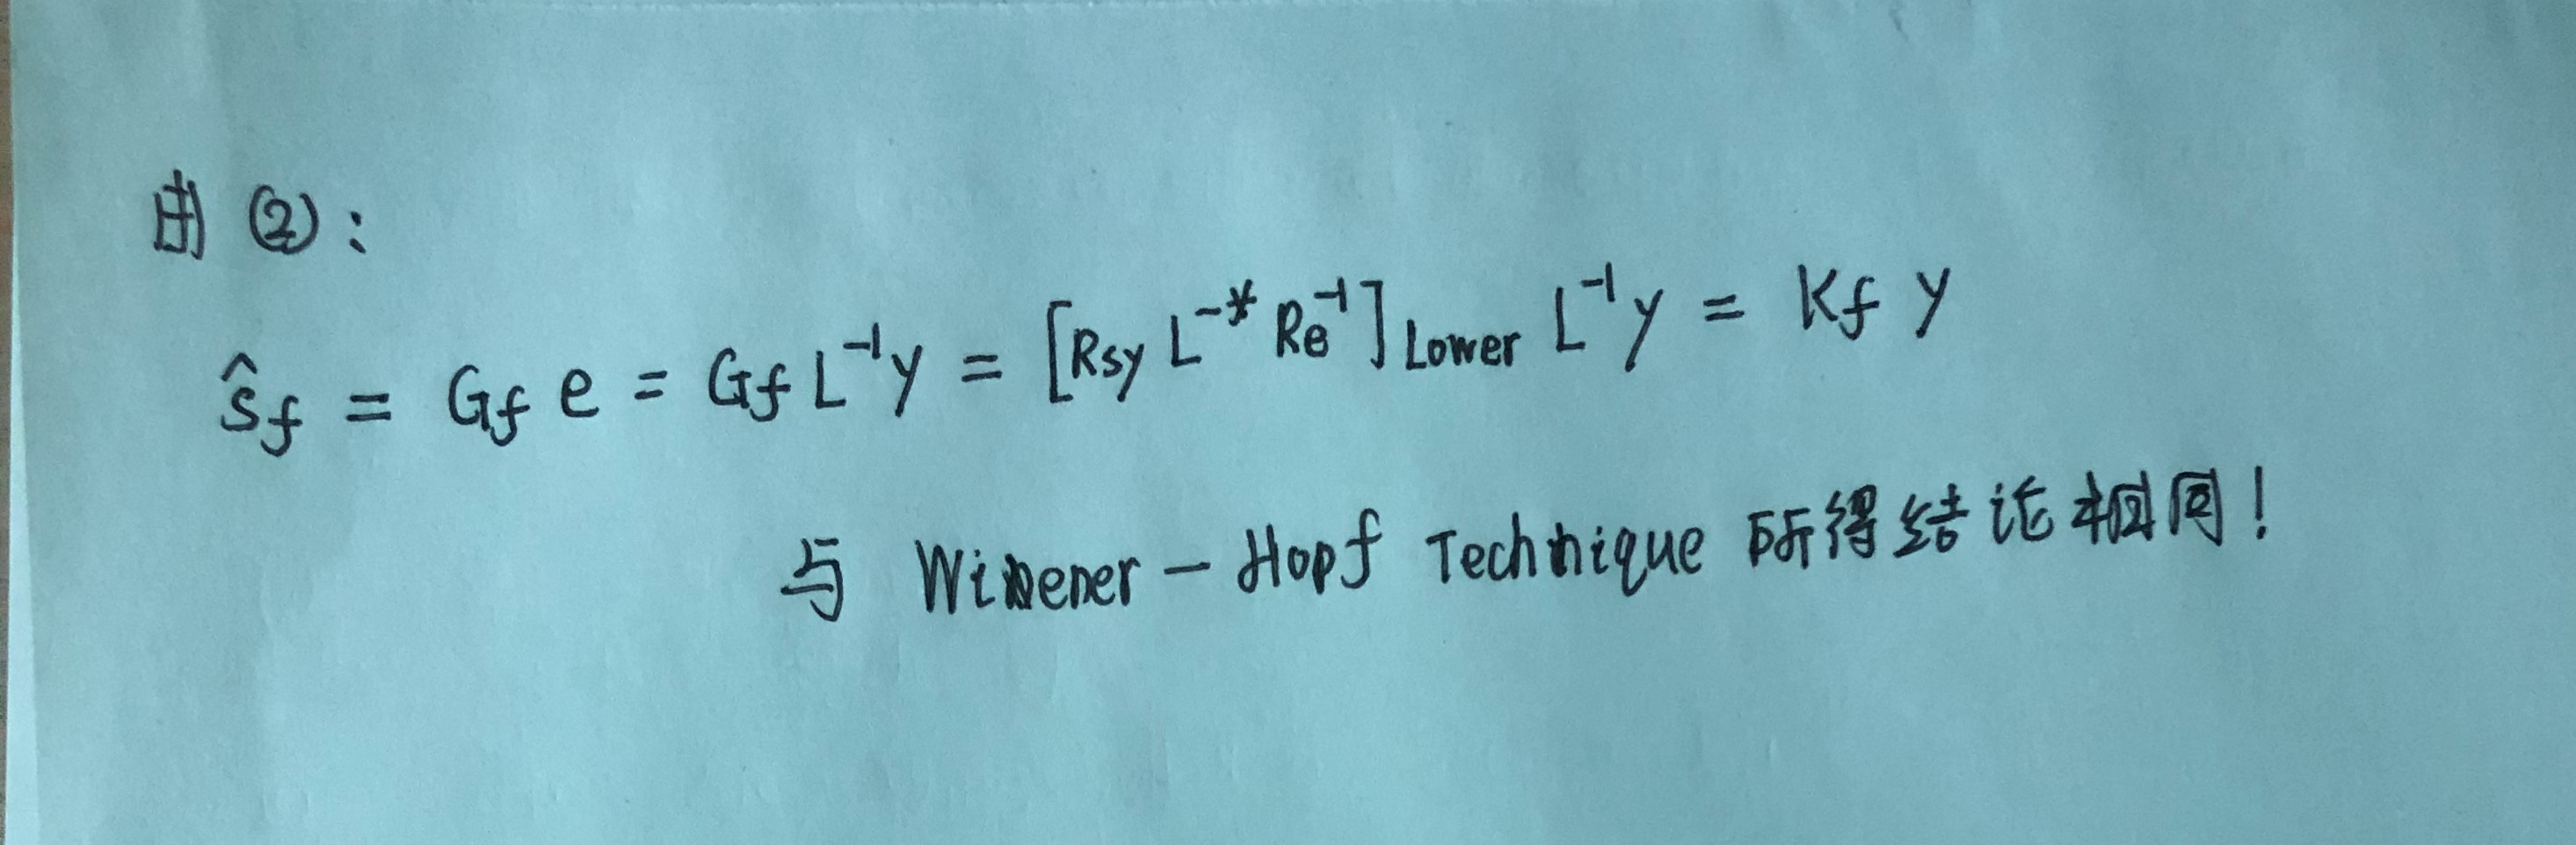 由 ②:
ŝf = Gf e = Gf L⁻¹y = [Rsy L⁻* Re⁻¹]Lower L⁻¹y = Kf y
与 Wienener - Hopf Technique 所得结论相同!